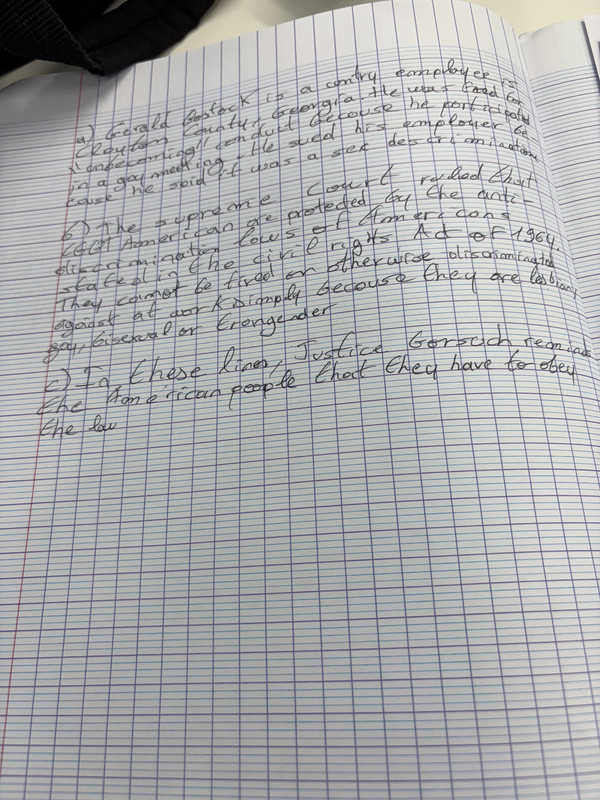 a) Gerald Bostock is a contry employee is
Clayton County, Georgia. He was fired for
"unbecoming" conduct because he participated
in a gay meeting. He sued his employer be
cause he said it was a sex descrimination
b) The supreme court ruled that
LGBT American are protected by the anti-
discrimination laws of Americans
stated in the civil rights Act of 1964.
They cannot be fired or otherwise discriminated
against at work simply because they are lesbian,
gay, bisexual or trongender
c) In these lines, Justice Gorsuch reminds
the American people that they have to obey
the law